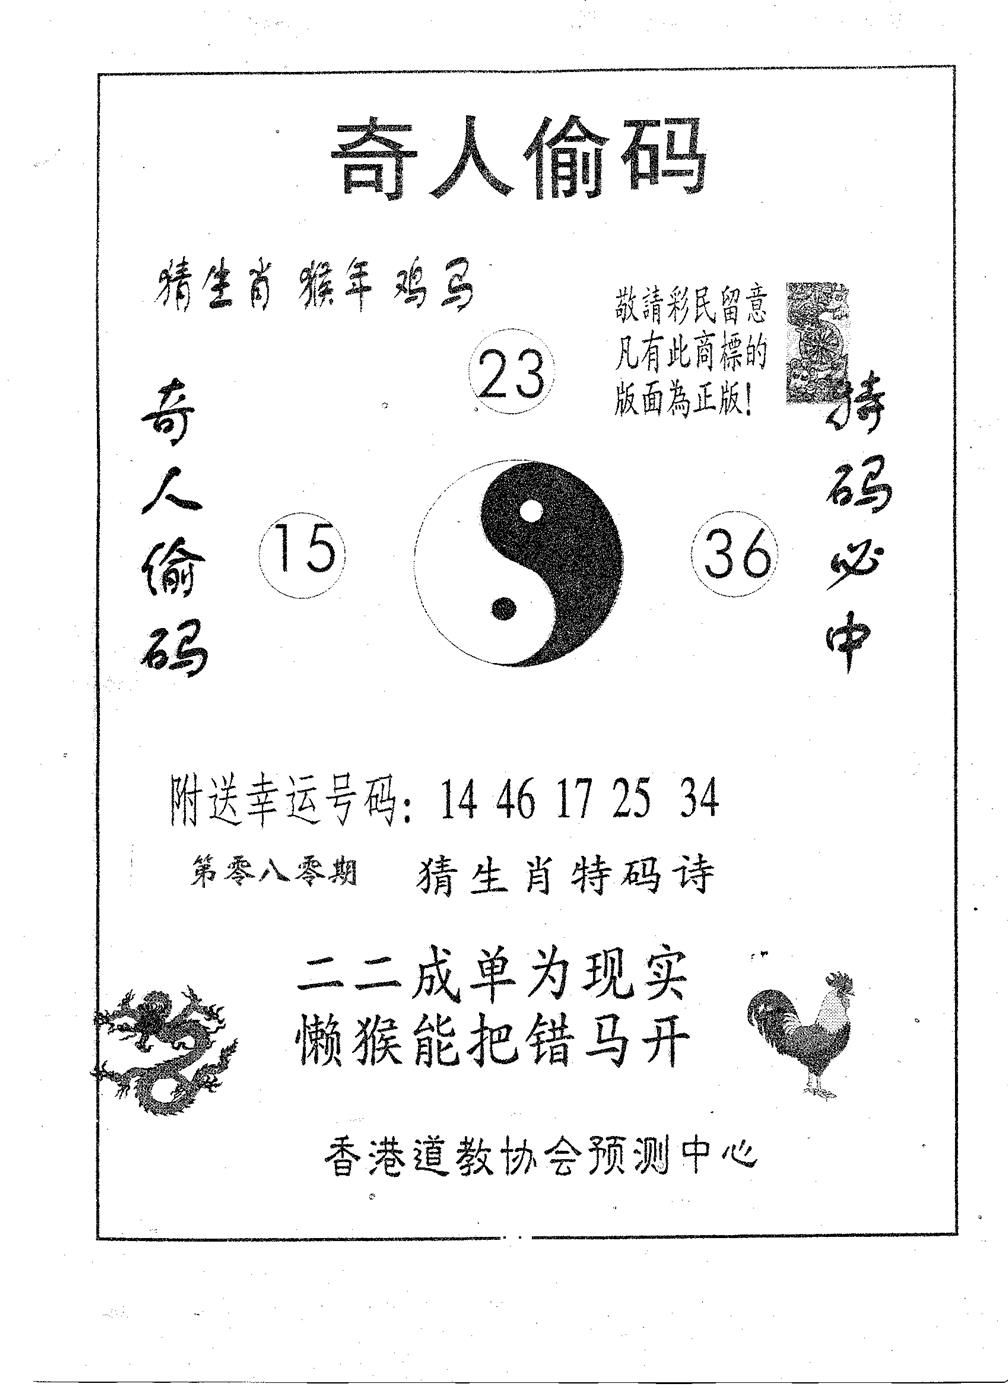 奇人偷码
猜生肖 猴年 鸡马
敬請彩民留意
凡有此商標的
版面為正版!
23
奇人偷码
15
36
特码必中
附送幸运号码: 14 46 17 25 34
第零八零期 猜生肖特码诗
二二成单为现实
懒猴能把错马开
香港道教协会预测中心